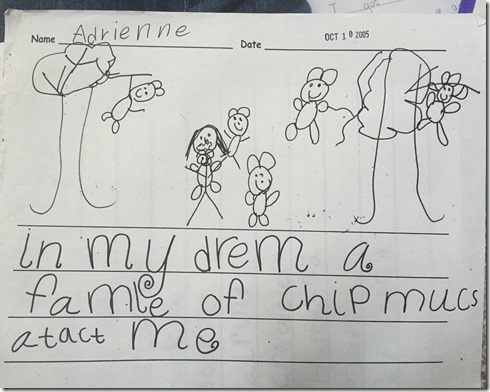 Name Adrienne Date OCT 10 2005
in my drem a
famle of chipmucs
atact me